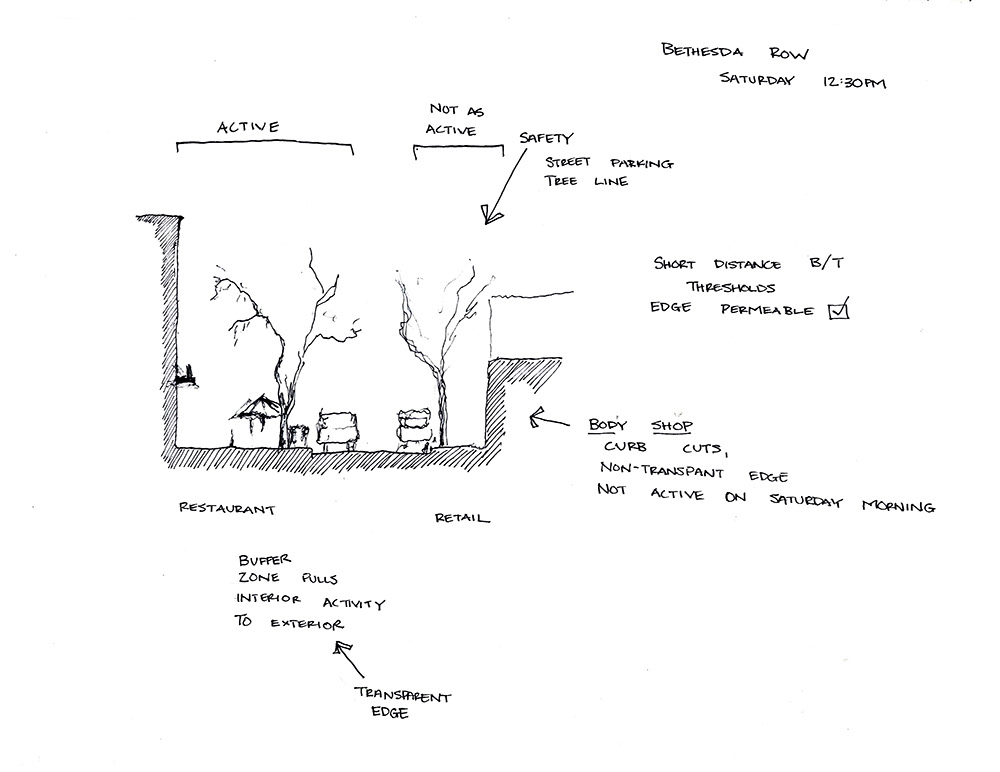 BETHESDA ROW
SATURDAY 12:30PM
ACTIVE
NOT AS
ACTIVE
SAFETY
STREET PARKING
TREE LINE
SHORT DISTANCE B/T
THRESHOLDS
EDGE PERMEABLE ☑
BODY SHOP
CURB CUTS,
NON-TRANSPANT EDGE
NOT ACTIVE ON SATURDAY MORNING
RESTAURANT
RETAIL
BUFFER
ZONE PULLS
INTERIOR ACTIVITY
TO EXTERIOR
TRANSPARENT
EDGE